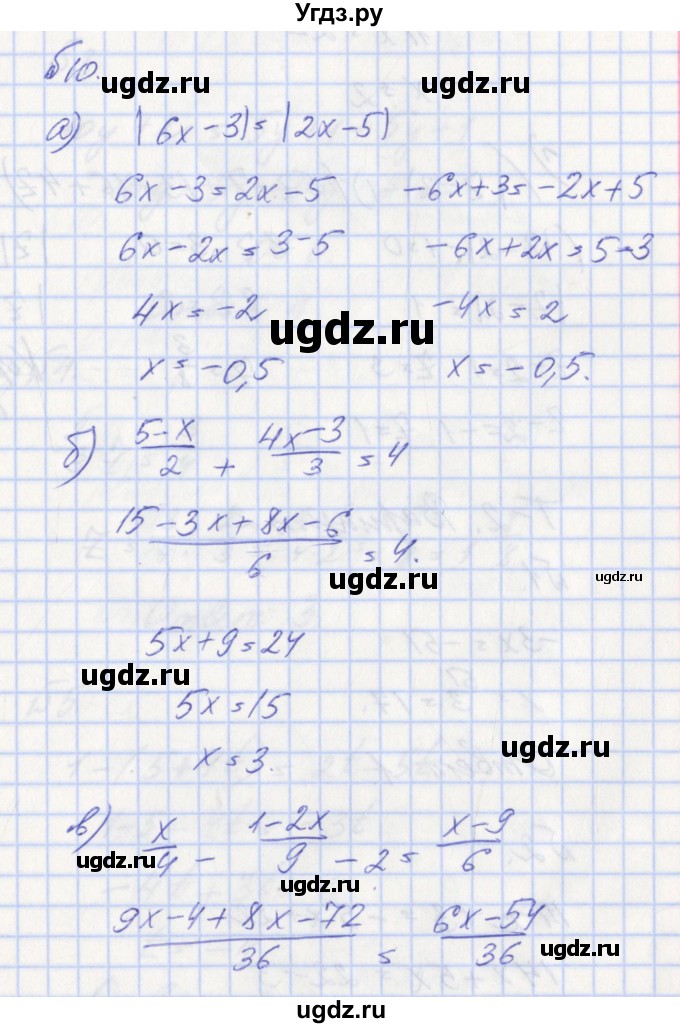 Угдз.ру
№10.
ugdz.ru ugdz.ru
а) |6x-3|=|2x-5|
6x-3=2x-5 -6x+3=-2x+5
6x-2x=3-5 -6x+2x=5-3
4x=-2 -4x=2
ugdz.ru
x=-0,5 x=-0,5.
б) (5-x)/2 + (4x-3)/3 = 4
(15-3x+8x-6)/6 = 4.
ugdz.ru ugdz.ru
5x+9=24
ugdz.ru
5x=15
x=3.
ugdz.ru
в) x/4 - (1-2x)/9 - 2 = (x-9)/6
ugdz.ru
ugdz.ru
(9x-4+8x-72)/36 = (6x-54)/36
ugdz.ru
ugdz.ru